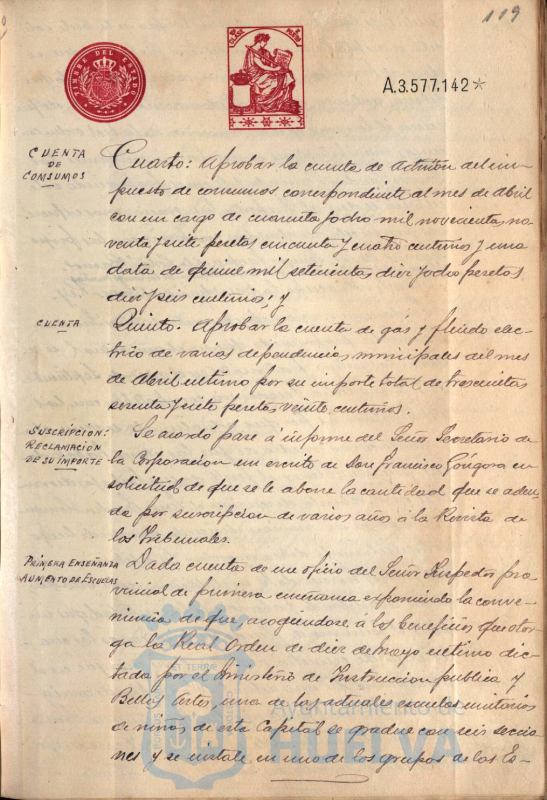 119
TIMBRE DEL ESTADO
A.3.577,142*
CUENTA
DE
COMSUMOS
Cuarto: Aprobar la cuenta de Admon del im-
puesto de consumos correspondiente al mes de Abril
con un cargo de cuarenta y ocho mil novecientas no-
venta y siete pesetas cincuenta y cuatro centimos y una
data de quince mil setecientas diez y ocho pesetas
diez y seis centimos; y
CUENTA
Quinto. Aprobar la cuenta de gas y fluido elec-
trico de varias dependencias municipales del mes
de Abril ultimo por su importe total de trescientas
setenta y siete pesetas, veinte centimos.
SUSCRIPCIÓN:
RECLAMACIÓN
DE SU IMPORTE
Se acordó pase á informe del Señor Secretario de
la Corporacion un escrito de Don Francisco Góngora en
solicitud de que se le abone la cantidad que se adeu-
da por suscripcion de varios años á la Revista de
los Tribunales.
PRIMERA ENSEÑANZA
AUMENTO DE ESCUELAS
Dada cuenta de un oficio del Señor Inspector pro-
vincial de primera enseñanza exponiendo la conve-
niencia de que, acogiendose á los beneficios que otor-
ga la Real Orden de diez de Mayo ultimo dic-
tada por el Ministerio de Instruccion publica y
Bellas Artes, una de las actuales escuelas unitarias
de niños de esta Capital se gradue con seis seccio-
nes y se instale en uno de los grupos de las Es-
Ayuntamiento de
HUELVA